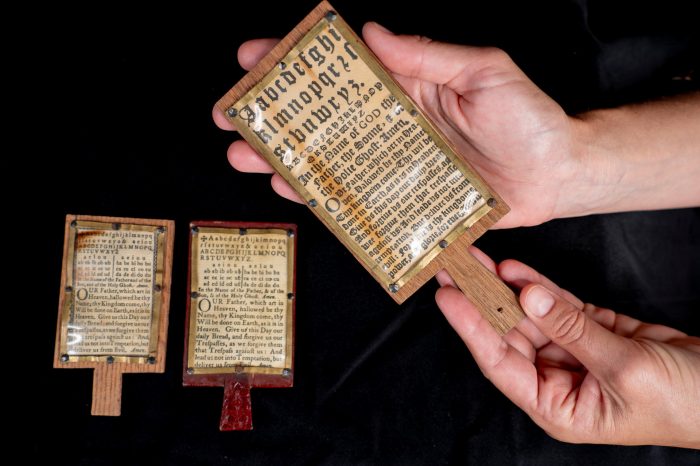 Aabcdefghi
klmnopqrſ
stvuwxyz.
In the Name of GOD the
Father, the Sonne, & of
the Holie Ghost: Amen.
Our Father, which art in
Hallowed be thy Name
Thy kingdom come, Thy will be
don in Earth as it is in heauen
Giue us this day our daily bread
And forgiue us our trespasses, as
wee forgiue them that trespasse
against us. And leade us not into
temptation, But deliuer us from
euill: For is the kingdom
power & glorie for euer.
abcdefghijklmnopq
rſstuvwxyz& aeiou
ABCDEFGHIJKLMNOPQ
RSTUVWXYZ.
aeiou aeiou
ba be bi bo bu
ca ce ci co cu
da de di do du
the Name of the Father and of the
Son, and of the Holy Ghoſt. Amen.
OUR Father, which art in
Heaven, hallowed be thy
Name; thy Kingdom come, thy
Will be done on Earth, as it is in
Heaven. Give us this Day our
daily Bread; and forgive us our
Treſpaſſes, as we forgive them
that treſpaſs againſt us: And
lead us not into Temptation, but
deliver us from Evil. Amen.
✠Aabcdefghijklmnopq
rſstuvwxyz& aeiou
ABCDEFGHIJKLMNOPQ
RSTUVWXYZ.
aeiou aeiou
ab eb ib ob ub ba be bi bo bu
ac ec ic oc uc ca ce ci co cu
ad ed id od ud da de di do du
In the Name of the Father, & of the
Son, & of the Holy Ghoſt. Amen.
OUR Father, which art in
Heaven, hallowed be thy
Name; thy Kingdom come, thy
Will be done on Earth, as it is in
Heaven. Give us this Day our
daily Bread, and forgive us our
Treſpaſſes, as we forgive them
that treſpaſs againſt us: And
lead us not into Temptation, but
deliver us from Evil. Amen.